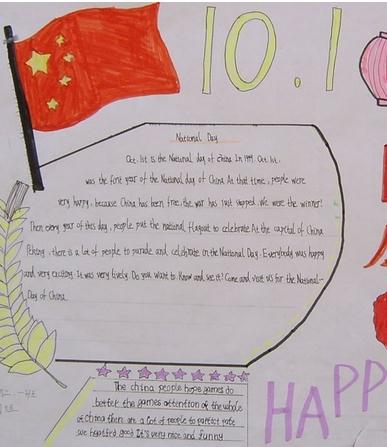 10.1
National Day
Oct. 1st is the National day of China. In 1949. Oct. 1st.
was the first year of the National day of China. At that time, people were
very happy, because China has been free, the war has just stopped. We were the winner!
Then every year of this day, people put the national flag out to celebrate. At the capital of China
Peking, there is a lot of people to parade and celebrate in the National Day. Everybody was happy
and very exciting. It was very lively. Do you want to know and see it? Come and visit us for the National-
Day of China.
The china people hope games do
better the games attention of the whole
of china there are a lot of people to partict pate
we good It's very nice and funny
HAPP